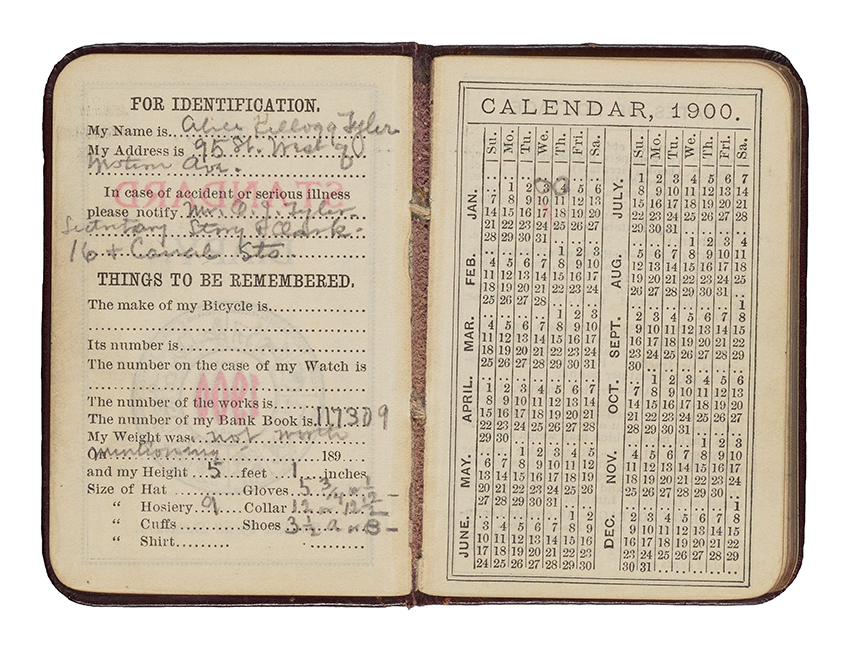 FOR IDENTIFICATION.
My Name is Alice Kellogg Tyler
My Address is 95 St. West of
Morton Ave.
In case of accident or serious illness
please notify Mr. O. J. Tyler
Secretary Story & Clark
16 & Canal Sts
THINGS TO BE REMEMBERED.
The make of my Bicycle is
Its number is
The number on the case of my Watch is
The number of the works is
The number of my Bank Book is 117309
My Weight was not worth
On mentioning 189
and my Height 5 feet 1 inches
Size of Hat Gloves 5 3/4 or
" Hosiery 9 Collar 12 or 12 1/2
" Cuffs Shoes 3 1/2 a or B
" Shirt
STANDARD
1900
CALENDAR, 1900.
Su. Mo. Tu. We. Th. Fri. Sa.
JAN.
1 2 3 4 5 6
7 8 9 10 11 12 13
14 15 16 17 18 19 20
21 22 23 24 25 26 27
28 29 30 31
FEB.
1 2 3
4 5 6 7 8 9 10
11 12 13 14 15 16 17
18 19 20 21 22 23 24
25 26 27 28
MAR.
1 2 3
4 5 6 7 8 9 10
11 12 13 14 15 16 17
18 19 20 21 22 23 24
25 26 27 28 29 30 31
APRIL.
1 2 3 4 5 6 7
8 9 10 11 12 13 14
15 16 17 18 19 20 21
22 23 24 25 26 27 28
29 30
MAY.
1 2 3 4 5
6 7 8 9 10 11 12
13 14 15 16 17 18 19
20 21 22 23 24 25 26
27 28 29 30 31
JUNE.
1 2
3 4 5 6 7 8 9
10 11 12 13 14 15 16
17 18 19 20 21 22 23
24 25 26 27 28 29 30
Su. Mo. Tu. We. Th. Fri. Sa.
JULY.
1 2 3 4 5 6 7
8 9 10 11 12 13 14
15 16 17 18 19 20 21
22 23 24 25 26 27 28
29 30 31
AUG.
1 2 3 4
5 6 7 8 9 10 11
12 13 14 15 16 17 18
19 20 21 22 23 24 25
26 27 28 29 30 31
SEPT.
1
2 3 4 5 6 7 8
9 10 11 12 13 14 15
16 17 18 19 20 21 22
23 24 25 26 27 28 29
30
OCT.
1 2 3 4 5 6
7 8 9 10 11 12 13
14 15 16 17 18 19 20
21 22 23 24 25 26 27
28 29 30 31
NOV.
1 2 3
4 5 6 7 8 9 10
11 12 13 14 15 16 17
18 19 20 21 22 23 24
25 26 27 28 29 30
DEC.
1
2 3 4 5 6 7 8
9 10 11 12 13 14 15
16 17 18 19 20 21 22
23 24 25 26 27 28 29
30 31